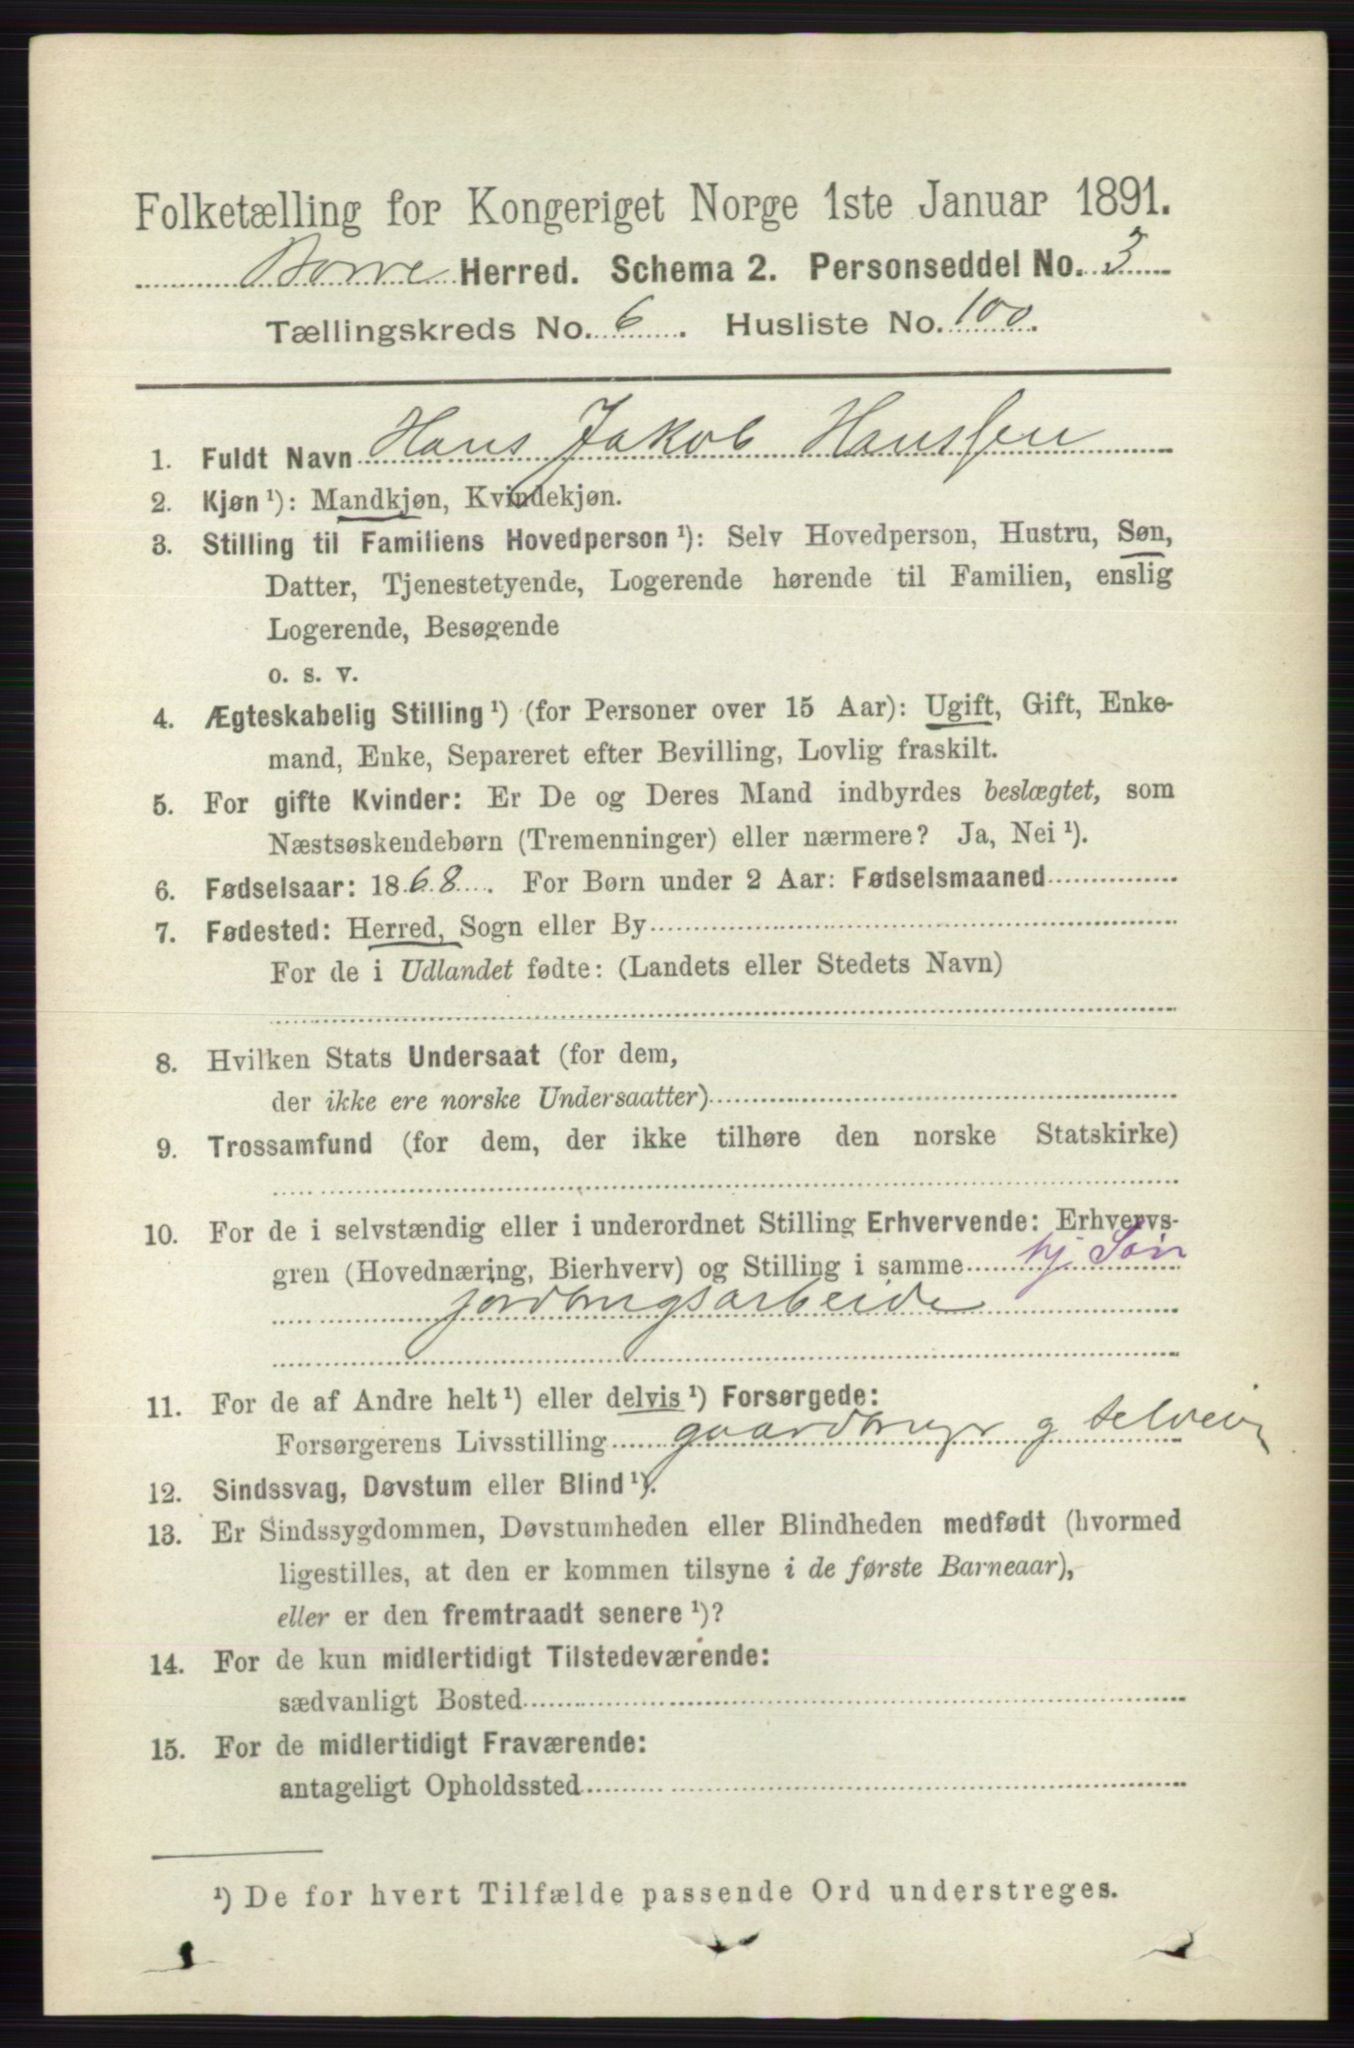 Folketælling for Kongeriget Norge 1ste Januar 1891.
Borre Herred. Schema 2. Personseddel No. 3
Tællingskreds No. 6. Husliste No. 100.
1. Fuldt Navn Hans Jakob Hanssen
2. Kjøn ¹): Mandkjøn, Kvindekjøn.
3. Stilling til Familiens Hovedperson ¹): Selv Hovedperson, Hustru, Søn,
Datter, Tjenestetyende, Logerende hørende til Familien, enslig
Logerende, Besøgende
o. s. v.
4. Ægteskabelig Stilling ¹) (for Personer over 15 Aar): Ugift, Gift, Enke-
mand, Enke, Separeret efter Bevilling, Lovlig fraskilt.
5. For gifte Kvinder: Er De og Deres Mand indbyrdes beslægtet, som
Næstsøskendebørn (Tremenninger) eller nærmere? Ja, Nei ¹).
6. Fødselsaar: 1868. For Børn under 2 Aar: Fødselsmaaned
7. Fødested: Herred, Sogn eller By
For de i Udlandet fødte: (Landets eller Stedets Navn)
8. Hvilken Stats Undersaat (for dem,
der ikke ere norske Undersaatter)
9. Trossamfund (for dem, der ikke tilhøre den norske Statskirke)
10. For de i selvstændig eller i underordnet Stilling Erhvervende: Erhvervs-
gren (Hovednæring, Bierhverv) og Stilling i samme hj. Søn
jordbrugsarbeide
11. For de af Andre helt ¹) eller delvis ¹) Forsørgede:
Forsørgerens Livsstilling gaardbruger g selveier
12. Sindssvag, Døvstum eller Blind ¹).
13. Er Sindssygdommen, Døvstumheden eller Blindheden medfødt (hvormed
ligestilles, at den er kommen tilsyne i de første Barneaar),
eller er den fremtraadt senere ¹)?
14. For de kun midlertidigt Tilstedeværende:
sædvanligt Bosted
15. For de midlertidigt Fraværende:
antageligt Opholdssted
¹) De for hvert Tilfælde passende Ord understreges.